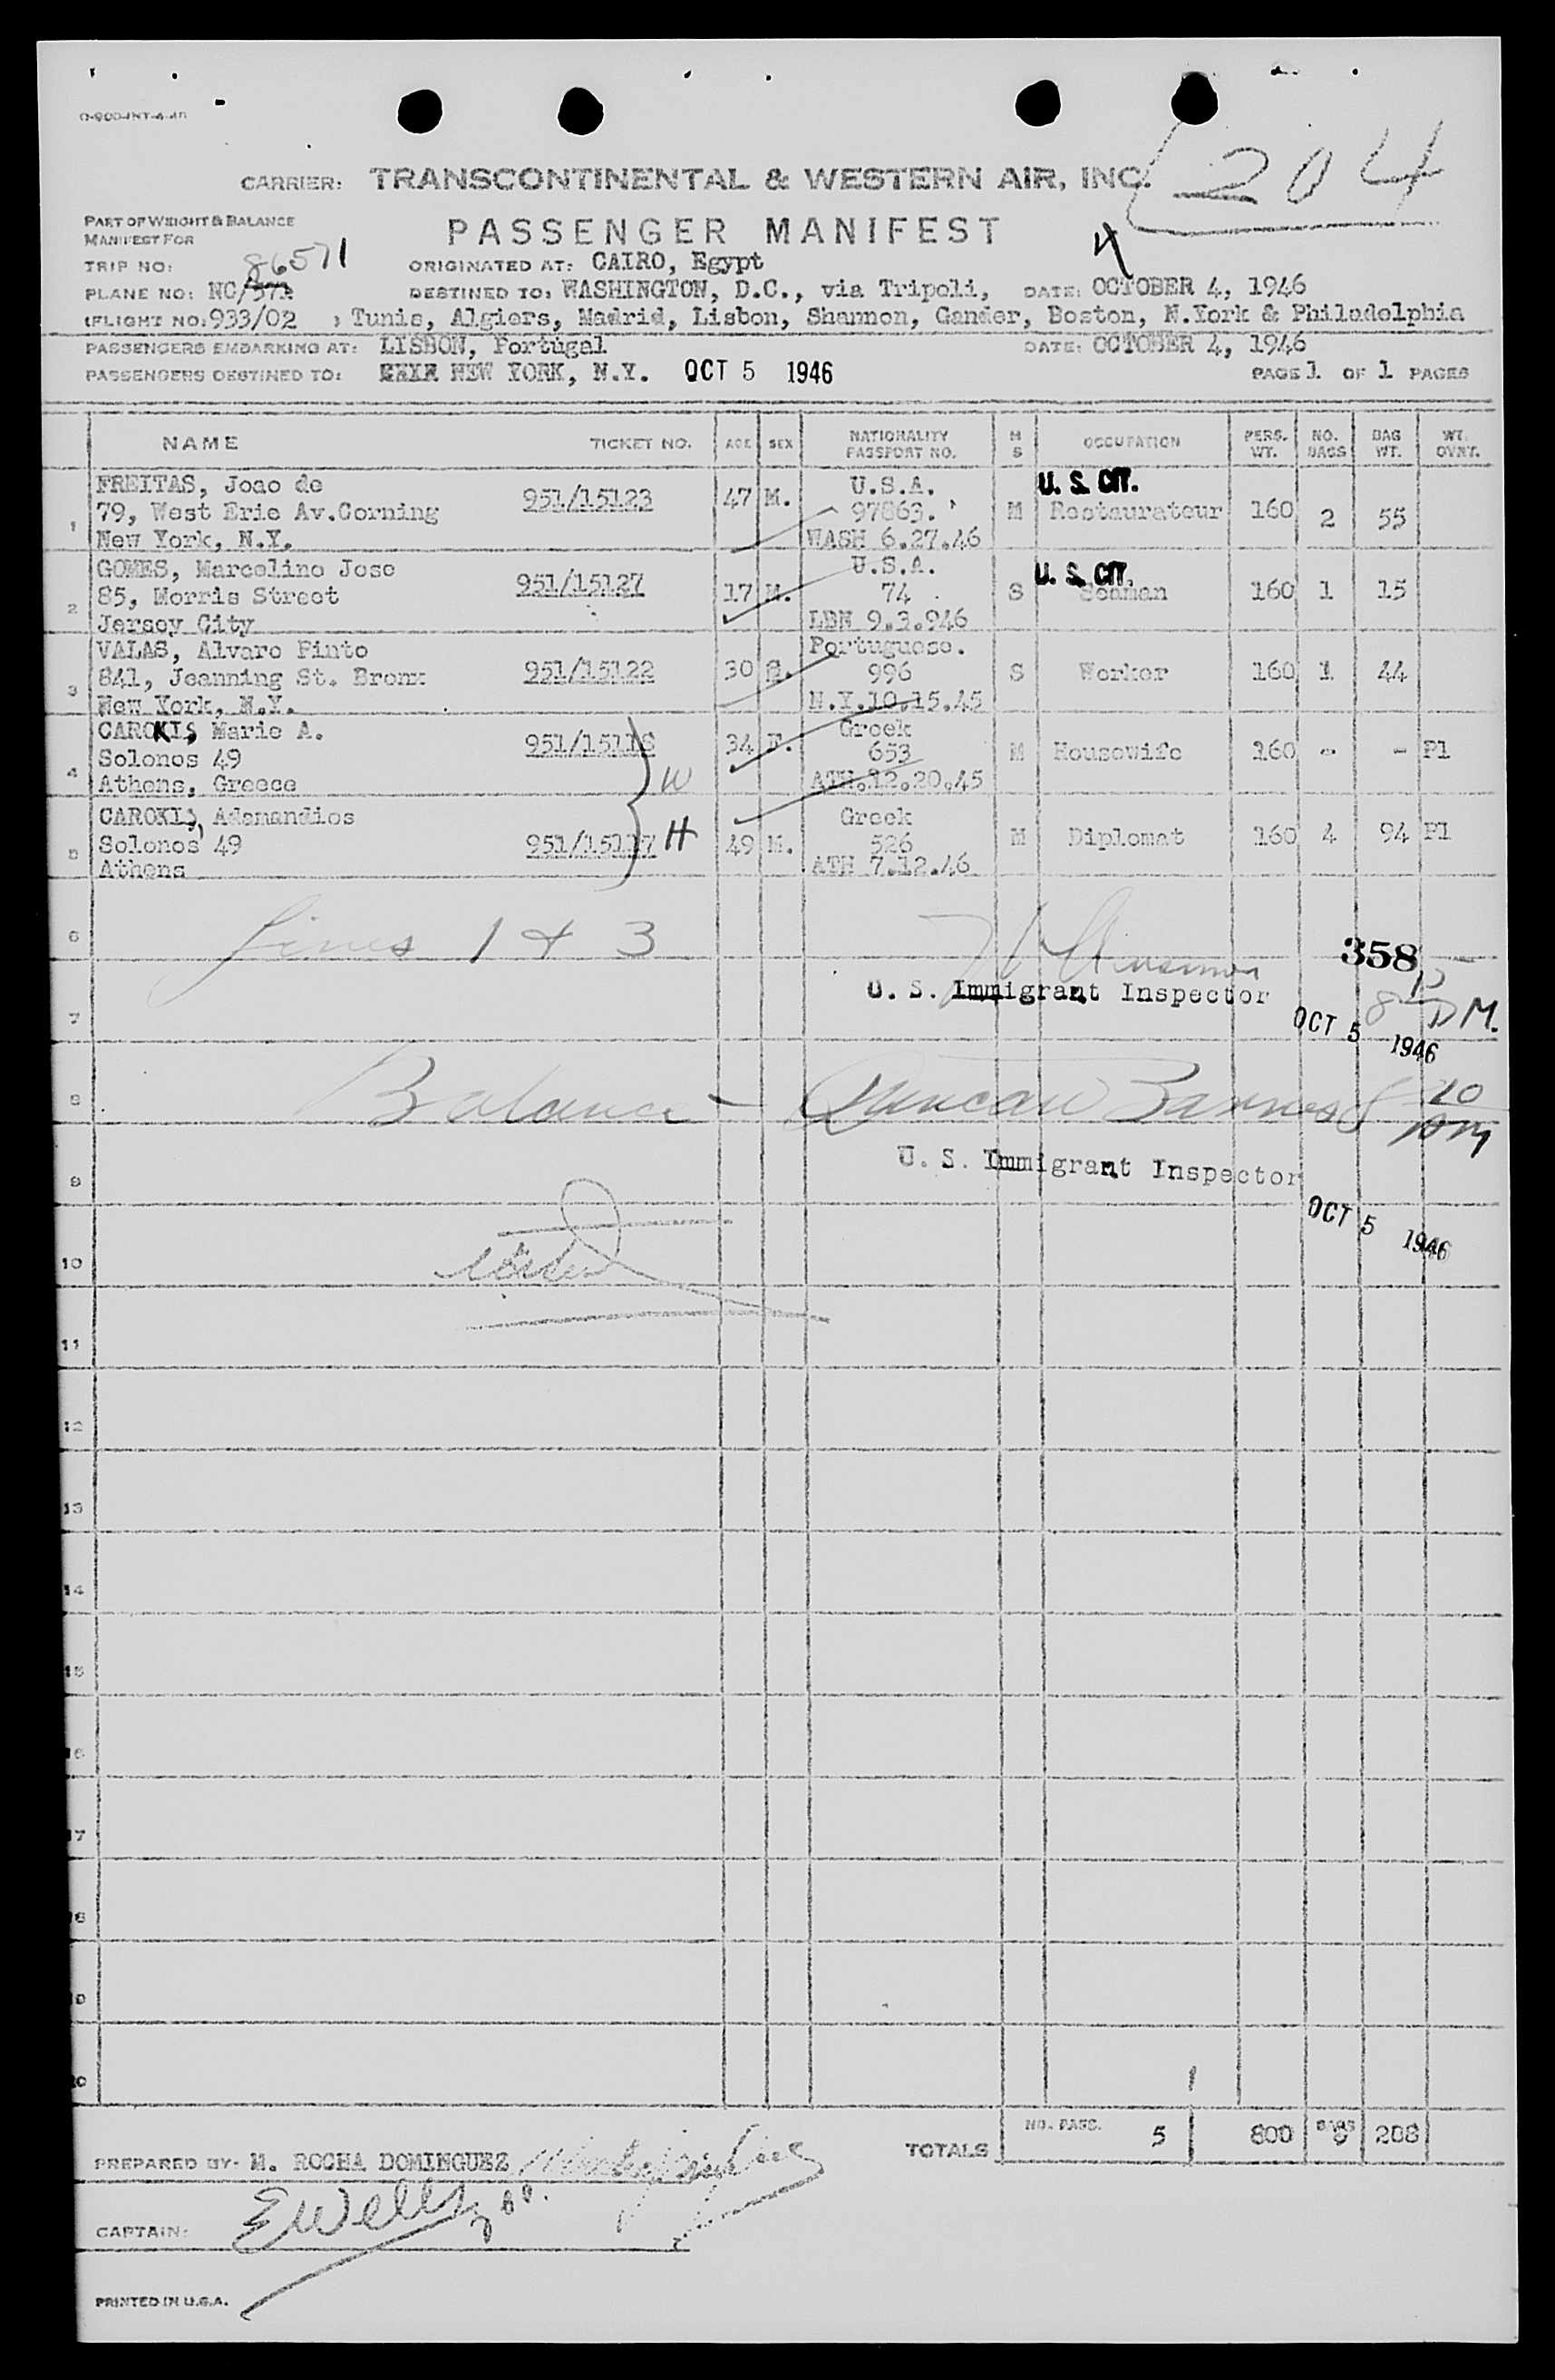 CARRIER: TRANSCONTINENTAL & WESTERN AIR, INC. 204
PART OF WEIGHT & BALANCE
MANIFEST FOR
PASSENGER MANIFEST
TRIP NO: 86571 ORIGINATED AT: CAIRO, Egypt
PLANE NO: NC/ DESTINED TO: WASHINGTON, D.C., via Tripoli, DATE: OCTOBER 4, 1946
(FLIGHT NO: 933/02 ) Tunis, Algiers, Madrid, Lisbon, Shannon, Gander, Boston, N.York & Philadelphia
PASSENGERS EMBARKING AT: LISBON, Portugal DATE: OCTOBER 4, 1946
PASSENGERS DESTINED TO: NEW YORK, N.Y. OCT 5 1946 PAGE 1 OF 1 PAGES
NAME TICKET NO. AGE SEX NATIONALITY PASSPORT NO. M S OCCUPATION PERS. WT. NO. BAGS BAG WT. WT. OVRT.
FREITAS, Joao de U.S.A. U. S. CIT.
1 79, West Erie Av.Corning 951/15123 47 M. 97863. M Restaurateur 160 2 55
New York, N.Y. WASH 6.27.46
GOMES, Marcelino Jose U.S.A. U. S. CIT.
2 85, Morris Street 951/15127 17 M. 74 S Seaman 160 1 15
Jersey City LBN 9.3.946
VALAS, Alvaro Pinto Portuguese.
3 841, Jeanning St. Bronx 951/15122 30 S. 996 S Worker 160 1 44
New York, N.Y. N.Y.10.15.45
CAROKIS Marie A. Greek
4 Solonos 49 951/15118 W 34 F. 653 M Housewife 160 - - P1
Athens, Greece ATH.12.20.45
CAROKIS Adamandios Greek
5 Solonos 49 951/15117 H 49 M. 526 M Diplomat 160 4 94 P1
Athens ATH 7.12.46
6 Lines 1 & 3 358
U. S. Immigrant Inspector
7 OCT 5 1946
8 Balance - Duncan Barnes 8 10 PM
U. S. Immigrant Inspector
9 OCT 5 1946
10
11
12
13
14
15
16
17
18
19
20
PREPARED BY: M. ROCHA DOMINGUEZ TOTALS NO. PASS. 5 800 BAGS 8 208
CAPTAIN: E Wells
PRINTED IN U.S.A.